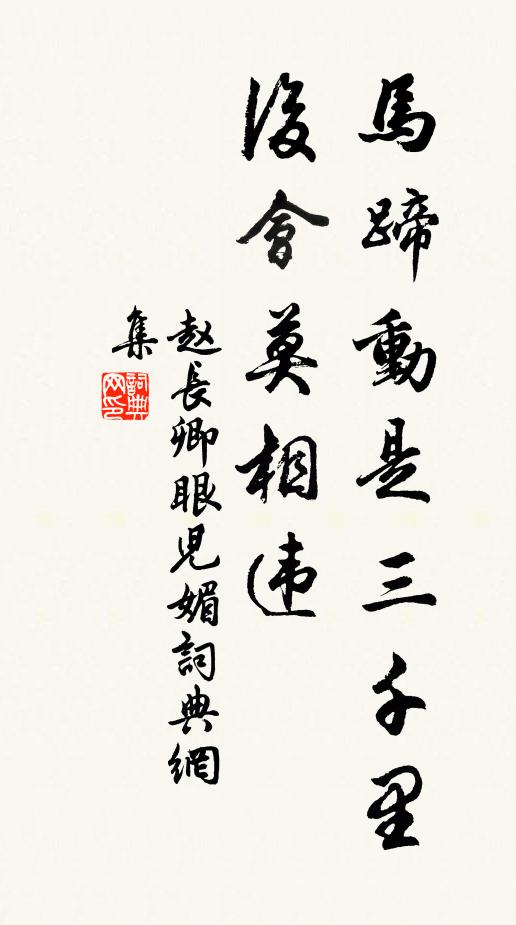 馬蹄動是三千里
後會莫相违
赵長卿眼児媚詞典網
集
詞典
网印